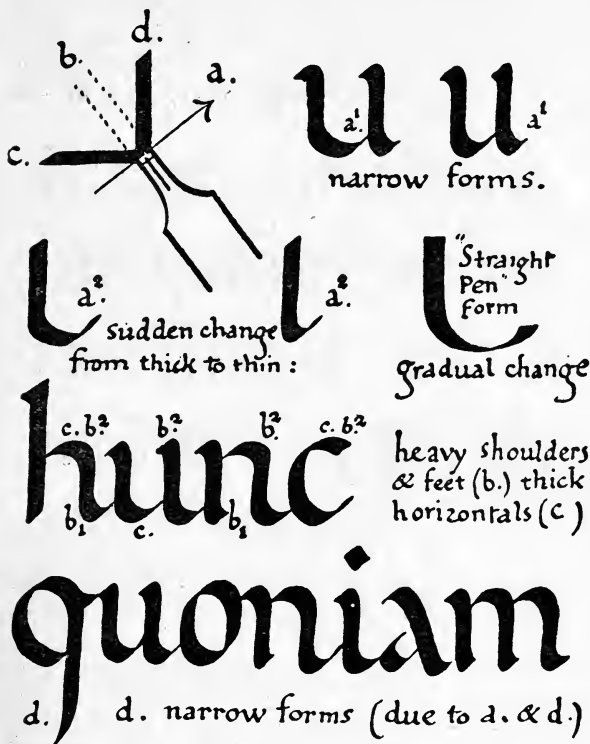 d.
b.
a.
c.
u u
a¹. a¹
narrow forms.
l a². l a².
sudden change
from thick to thin :
l "Straight
Pen"
form
gradual change
c. b.² b.² b.² c. b.²
hunc
b₁ c. b₁
heavy shoulders
& feet (b.) thick
horizontals (c)
quoniam
d. d. narrow forms (due to a. & d.)